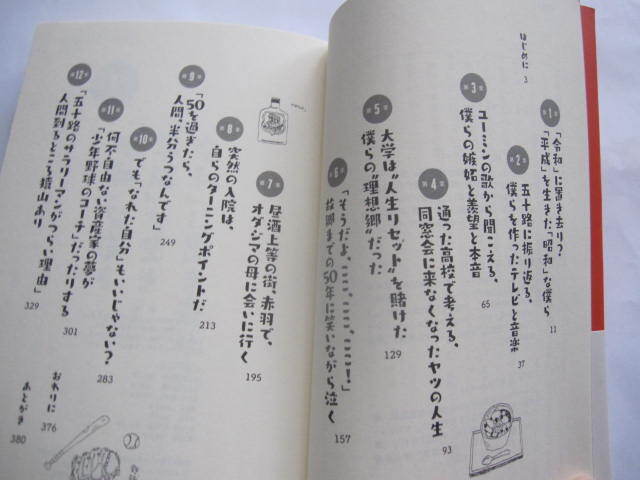 はじめに 3
第1章
「令和」に置き去り?
「平成」を生きた「昭和」な僕ら
11
第2章
五十路に振り返る、
僕らを作ったテレビと音楽
37
第3章
ユーミンの歌から聞こえる、
僕らの嫉妬と羨望と本音
65
第4章
通った高校で考える、
同窓会に来なくなったヤツの人生
93
第5章
大学は“人生リセット”を賭けた
僕らの“理想郷”だった
129
第6章
「そうだよ、ここ、ここ、ここ!」
故郷までの50年に笑いながら泣く
157
第7章
昼酒上等の街、赤羽で、
オダジマの母に会いに行く
195
第8章
突然の入院は、
自らのターニングポイントだ
213
第9章
「50を過ぎたら、
人間、半分うつなんです」
249
第10章
でも「なれた自分」もいいじゃない?
283
第11章
何不自由ない資産家の夢が
「少年野球のコーチ」だったりする
301
第12章
「五十路のサラリーマンがつらい理由」
人間到るところ墳山あり
329
おわりに 376
あとがき 380